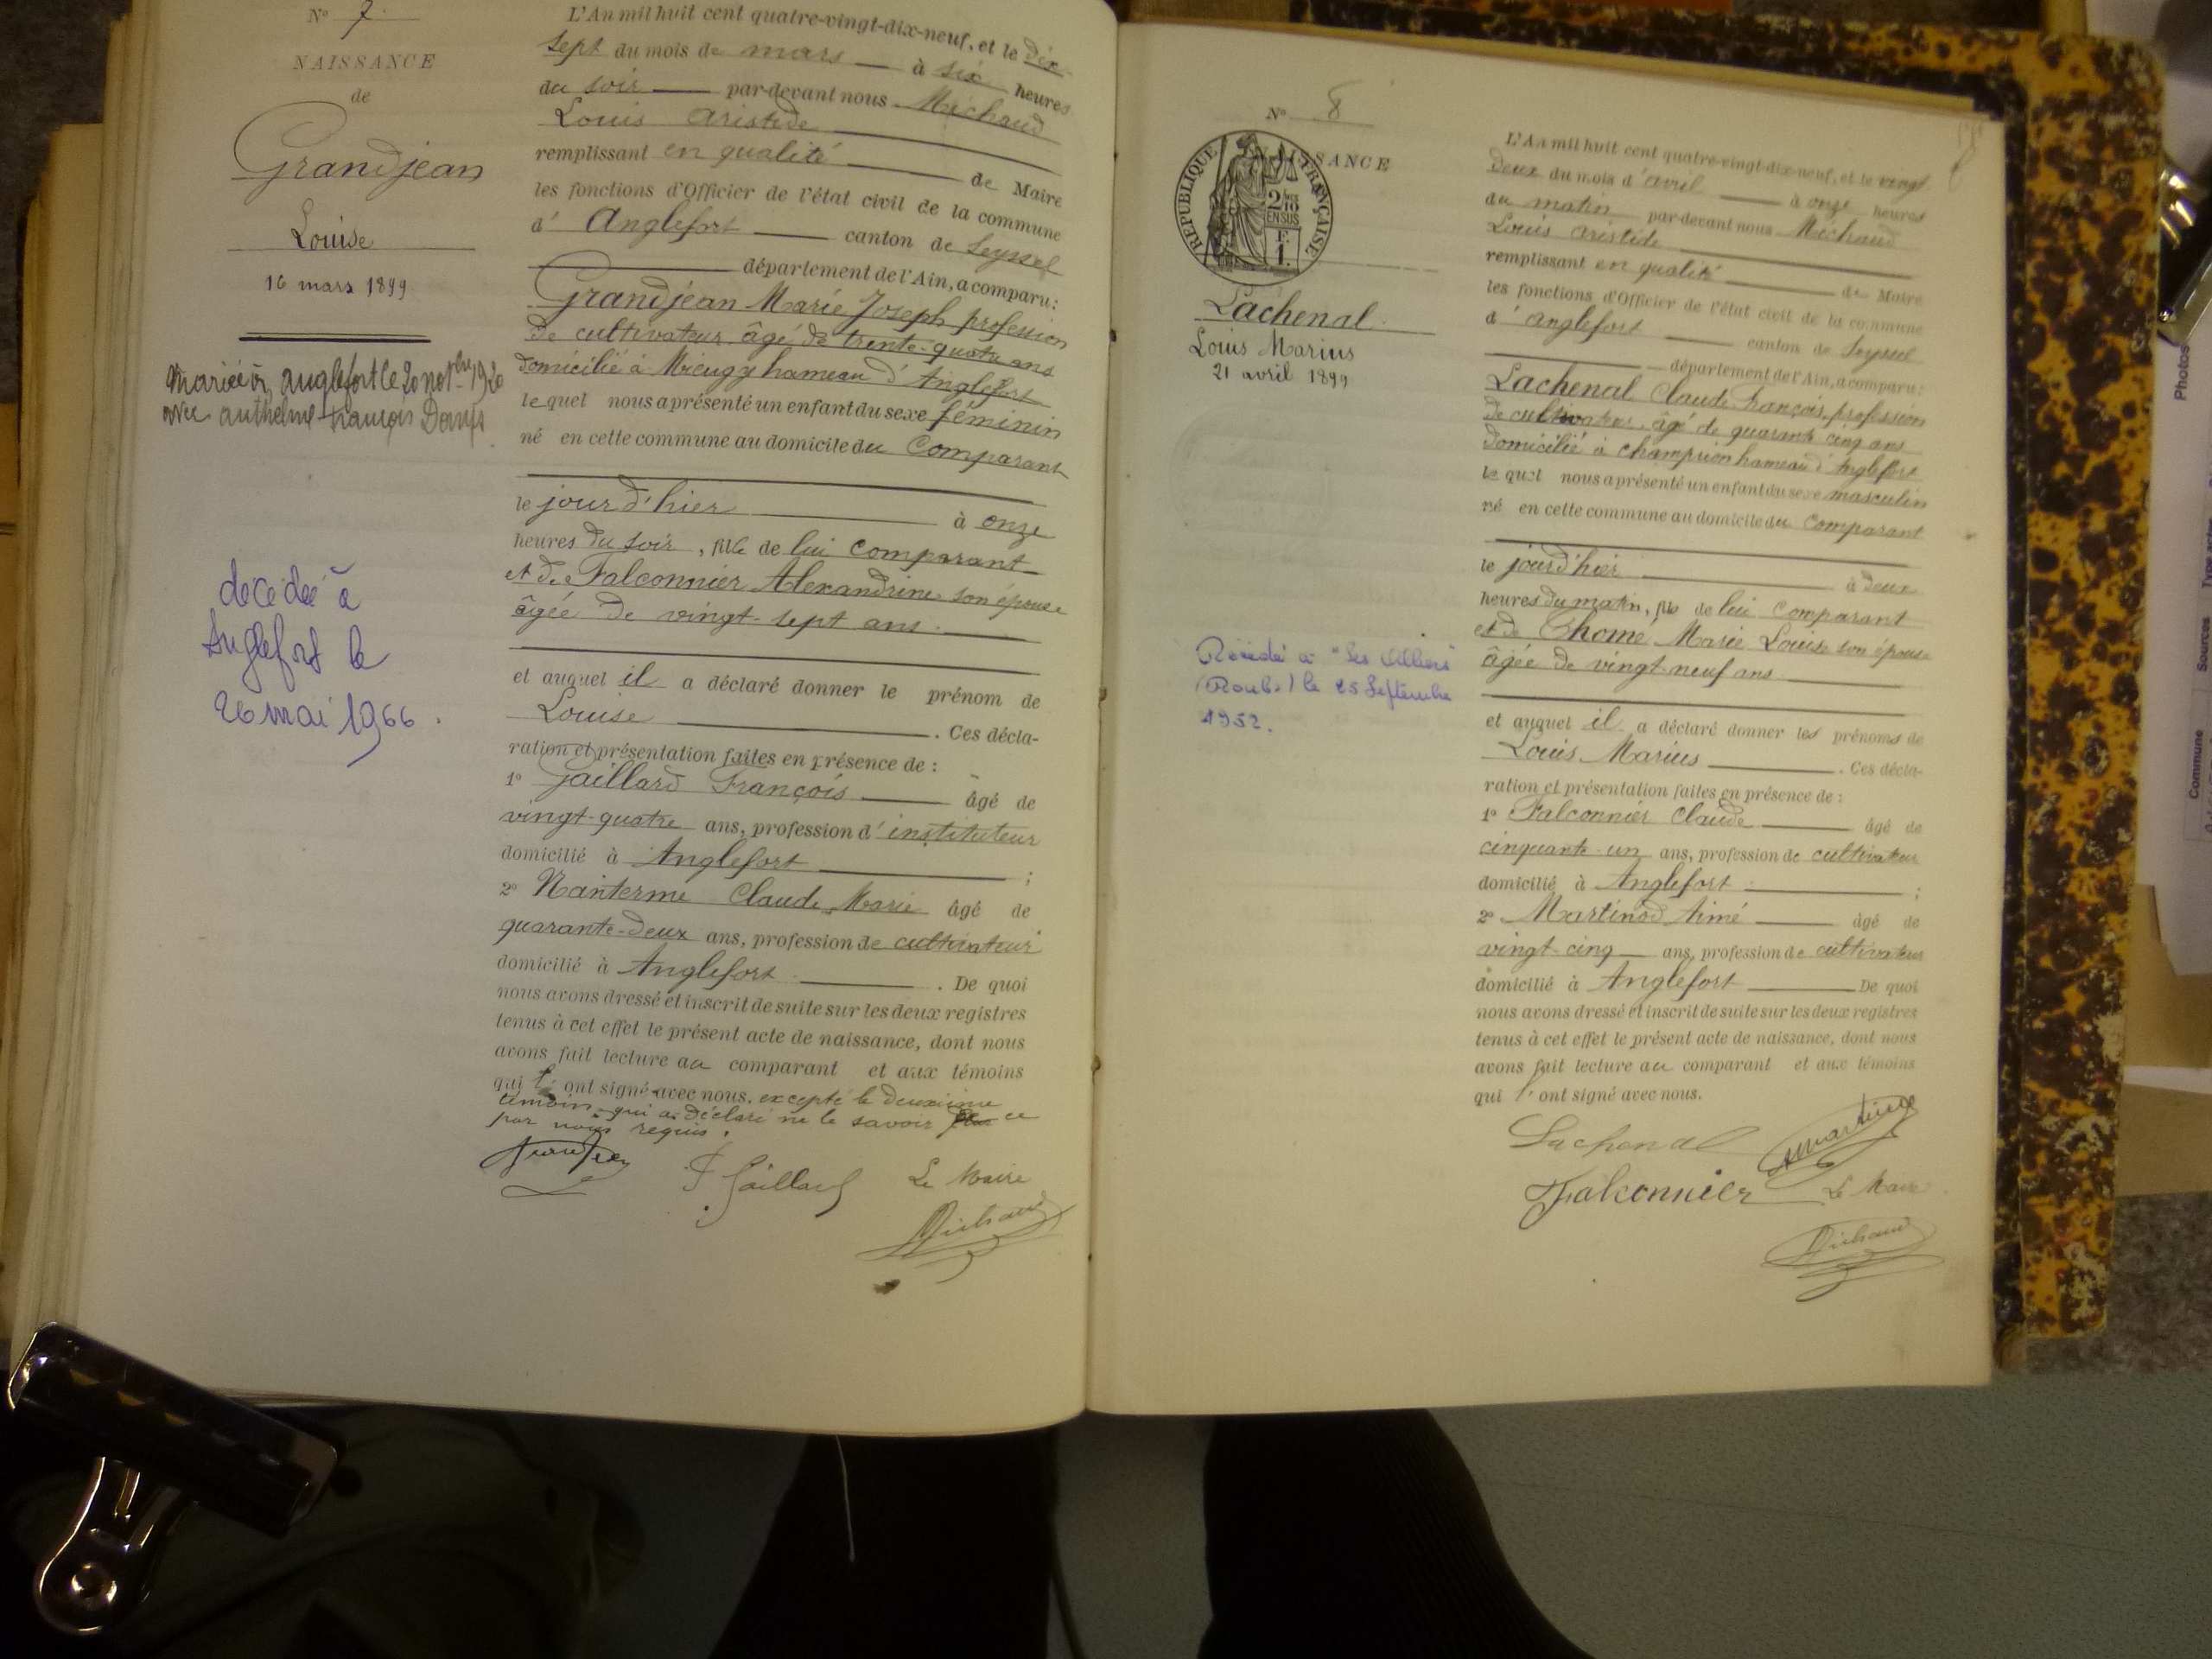 N° 7.
NAISSANCE
de
Grandjean
Louise
16 mars 1899
Mariée à Anglefort le 20 nov bre 1920
avec Anthelme François
décédée à
Anglefort le
26 mai 1966.
L'An mil huit cent quatre-vingt-dix-neuf, et le dix-
sept du mois de mars à six heures
du soir par-devant nous Michaud
Louis Aristide
remplissant en qualité de Maire
les fonctions d'Officier de l'état civil de la commune
d' Anglefort canton de Seyssel
département de l'Ain, a comparu:
Grandjean Marie Joseph profession
de cultivateur âgé de trente-quatre ans
domicilié à hameau d'Anglefort
lequel nous a présenté un enfant du sexe féminin
né en cette commune au domicile du Comparant
le jour d'hier à onze
heures du soir, fille de lui comparant
et de Falconnier Alexandrine son épouse
âgée de vingt-sept ans.
et auquel il a déclaré donner le prénom de
Louise . Ces décla-
ration et présentation faites en présence de :
1° Gaillard François âgé de
vingt-quatre ans, profession d'instituteur
domicilié à Anglefort ;
2° Nanterme Claude Marie âgé de
quarante-deux ans, profession de cultivateur
domicilié à Anglefort . De quoi
nous avons dressé et inscrit de suite sur les deux registres
tenus à cet effet le présent acte de naissance, dont nous
avons fait lecture au comparant et aux témoins
qui l' ont signé avec nous. excepté le deuxième
témoin qui a déclaré ne le savoir ce
par nous requis.
F Gaillard Le Maire
Michaud
N° 8
NAISSANCE
RÉPUBLIQUE FRANÇAISE
2/10
EN SUS
F.
1.
Lachenal
Louis Marius
21 avril 1899
Décédé à "
le 25 Septembre
1952.
L'An mil huit cent quatre-vingt-dix-neuf, et le vingt
deux du mois d'avril à onze heures
du matin par-devant nous Michaud
Louis Aristide
remplissant en qualité de Maire
les fonctions d'Officier de l'état civil de la commune
d' Anglefort canton de Seyssel
département de l'Ain, a comparu:
Lachenal Claude François, profession
de cultivateur âgé de quarante cinq ans
domicilié à hameau d'Anglefort
lequel nous a présenté un enfant du sexe masculin
né en cette commune au domicile du Comparant
le jour d'hier à deux
heures du matin, fils de lui comparant
et de Thomé Marie Louise son épouse
âgée de vingt-neuf ans
et auquel il a déclaré donner les prénoms de
Louis Marius . Ces décla-
ration et présentation faites en présence de :
1° Falconnier Claude âgé de
cinquante-un ans, profession de cultivateur
domicilié à Anglefort ;
2° Martinod Aimé âgé de
vingt-cinq ans, profession de cultivateur
domicilié à Anglefort De quoi
nous avons dressé et inscrit de suite sur les deux registres
tenus à cet effet le présent acte de naissance, dont nous
avons fait lecture au comparant et aux témoins
qui l' ont signé avec nous.
Lachenal
Falconnier Le Maire
Michaud
Photos
Sources
Commune